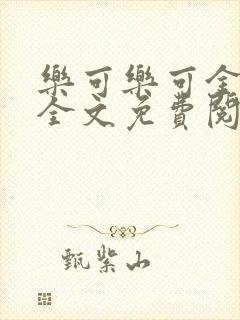 樂可樂可全
全文免費閱
甄紫山